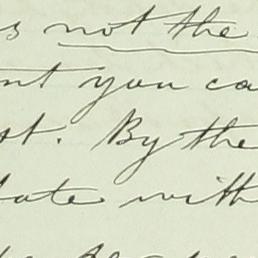 s not the
nt you ca
st. By the
late with